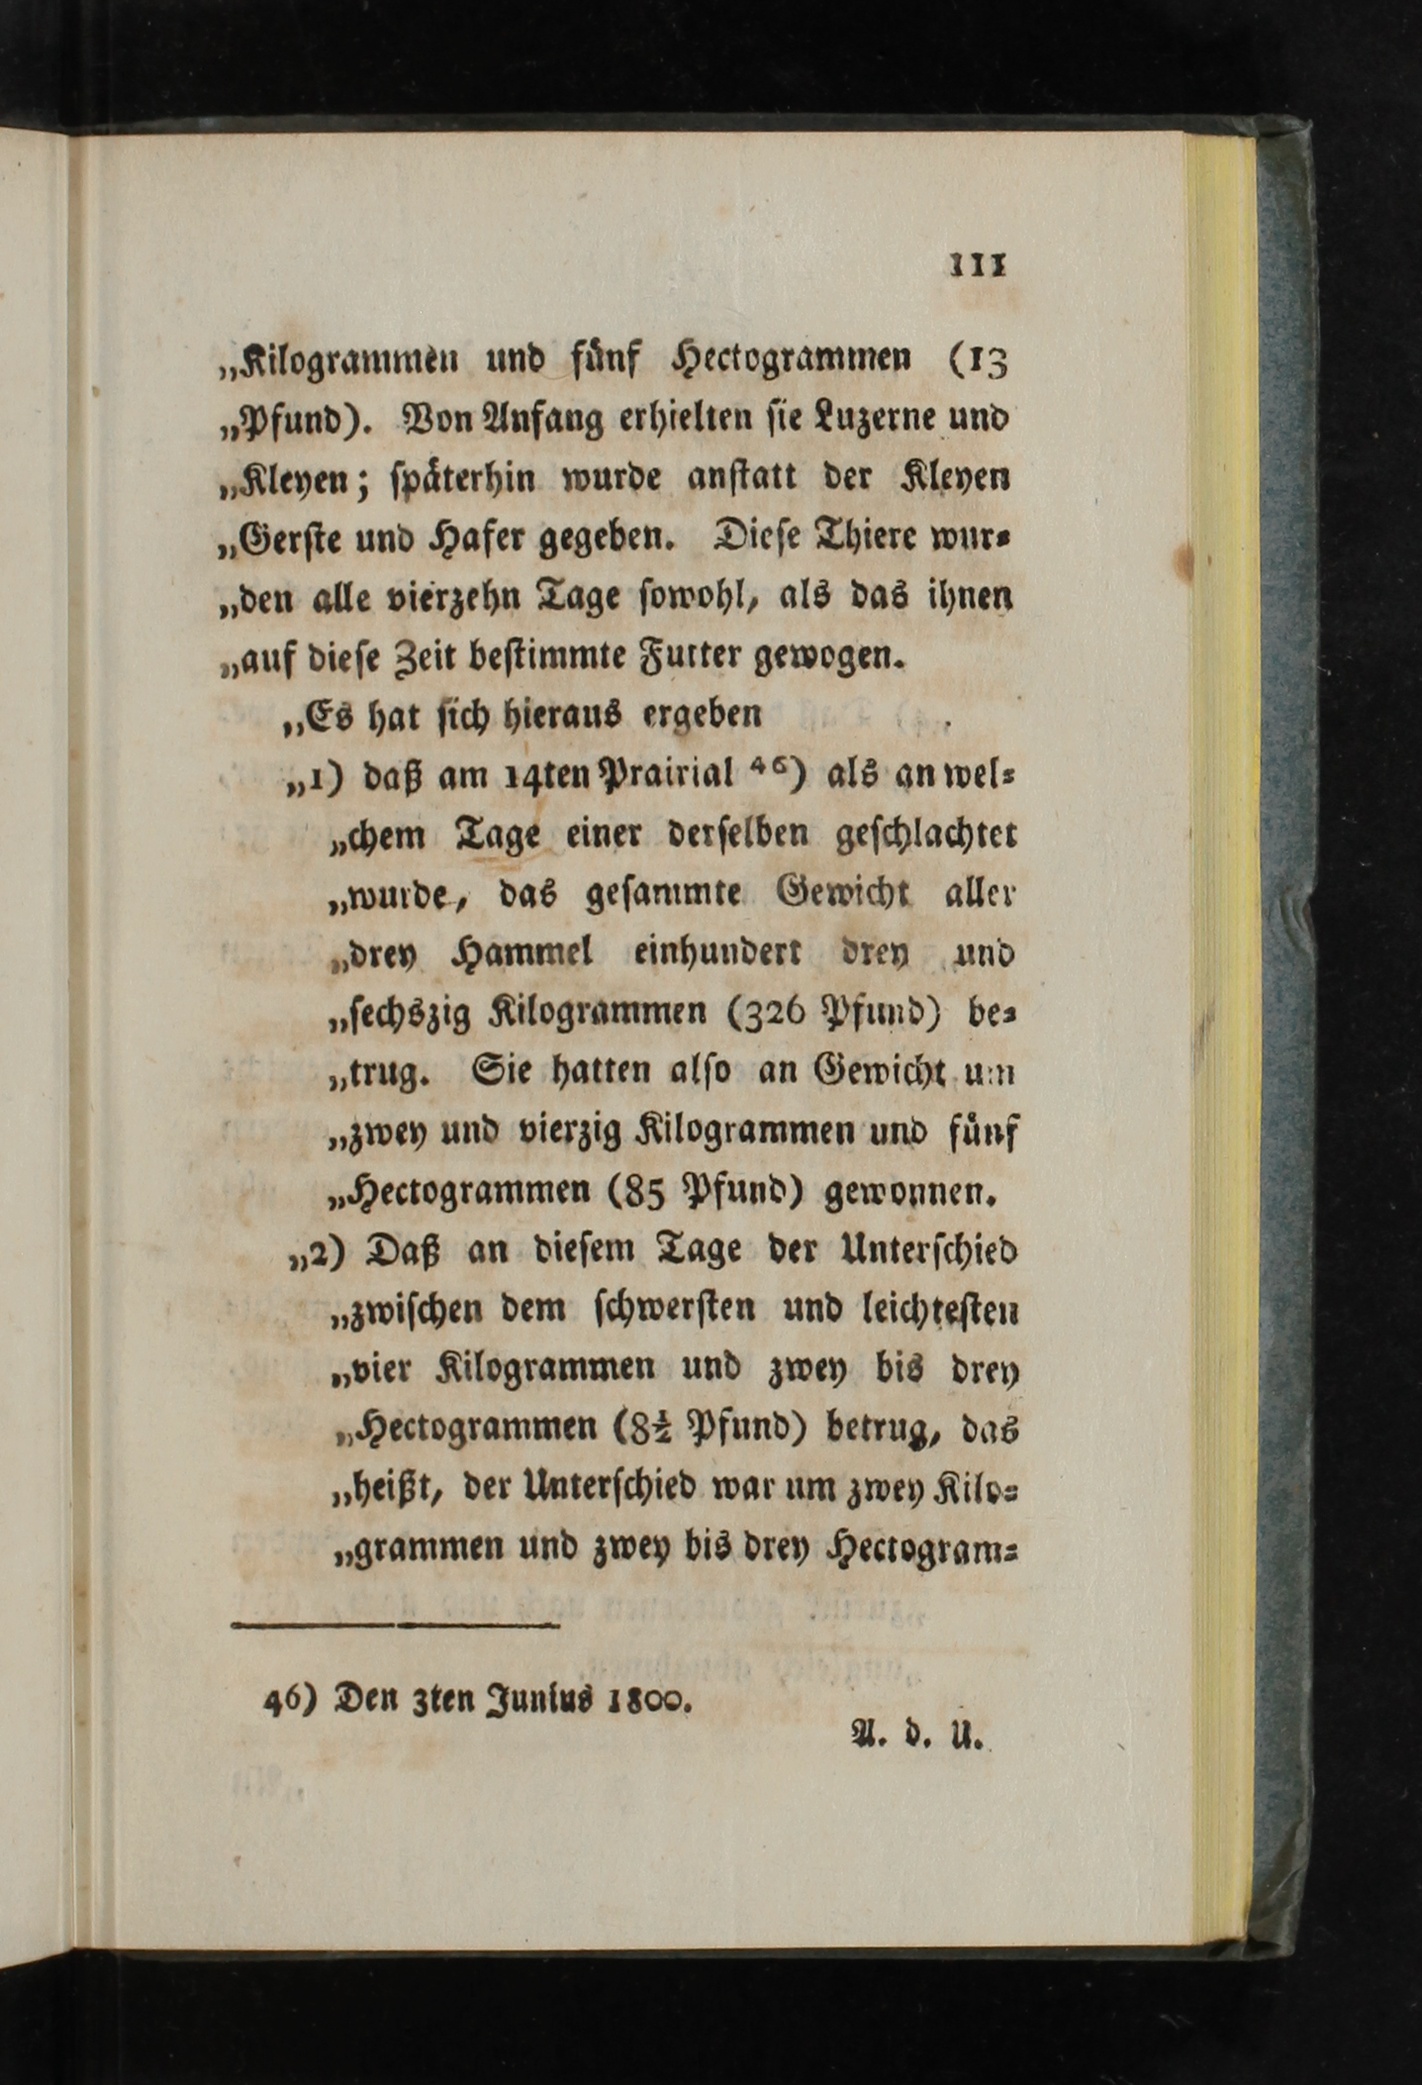 111
„Kilogrammen und fünf Hectogrammen (13
„Pfund). Von Anfang erhielten sie Luzerne und
„Kleyen; späterhin wurde anstatt der Kleyen
„Gerste und Hafer gegeben. Diese Thiere wur⸗
„den alle vierzehn Tage sowohl, als das ihnen
„auf diese Zeit bestimmte Futter gewogen.
„Es hat sich hieraus ergeben
„1) daß am 14ten Prairial ⁴⁶) als an wel⸗
„chem Tage einer derselben geschlachtet
„wurde, das gesammte Gewicht aller
„drey Hammel einhundert drey und
„sechszig Kilogrammen (326 Pfund) be⸗
„trug. Sie hatten also an Gewicht um
„zwey und vierzig Kilogrammen und fünf
„Hectogrammen (85 Pfund) gewonnen.
„2) Daß an diesem Tage der Unterschied
„zwischen dem schwersten und leichtesten
„vier Kilogrammen und zwey bis drey
„Hectogrammen (8½ Pfund) betrug, das
„heißt, der Unterschied war um zwey Kilo⸗
„grammen und zwey bis drey Hectogram⸗
46) Den 3ten Junius 1800.
A. d. U.